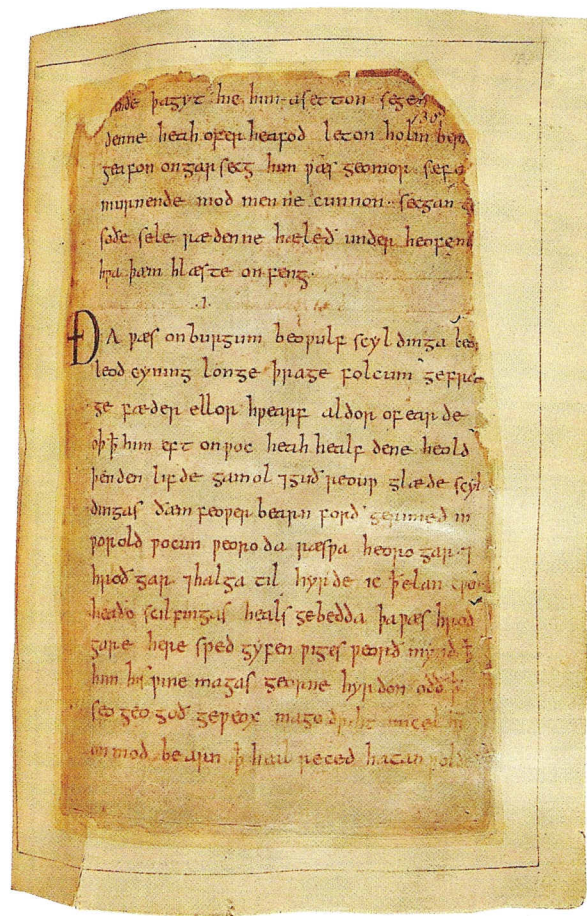 130
þagyt hie him asetton segen
denne heah ofer heafod leton holm beran
geafon ongarsecg him ƿæs geomor sefa
murnende mod men ne cunnon secgan
soðe sele rædenne hæleð under heofenum
hƿa þæm hlæste onfeng.
.I.
ÐA ƿæs onburgum beoƿulf scyldinga leof
leod cyning longe þrage folcum gefræ
ge fæder ellor hƿearf aldor ofearde
oþ ꝥ him eft onƿoc heah healfdene heold
þenden lifde gamol ⁊ guð reouƿ glæde scyl
dingas ðæm feoƿer bearn forð gerimed in
ƿorold ƿocun ƿeoroda ræsƿa heorogar ⁊
hroðgar ⁊ halga til hyrde ic ꝥ elan cƿen
heaðo scilfingas heals gebedda þa ƿæs hroð
gare here sped gyfen ƿiges ƿeorð mynd ꝥ
him his ƿine magas georne hyrdon oðð ꝥ
seo geogoð geƿeox mago driht micel him
on mod bearn ꝥ heal reced hatan ƿolde